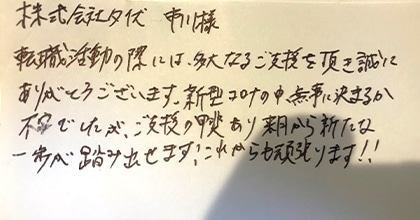 株式会社タイズ 中川様
転職活動の際には、多大なるご支援を頂き誠に
ありがとうございます。新型コロナの中無事に決まるか
不安でしたが、ご支援の甲斐あり来月から新たな
一歩が踏み出せます!これからも頑張ります!!